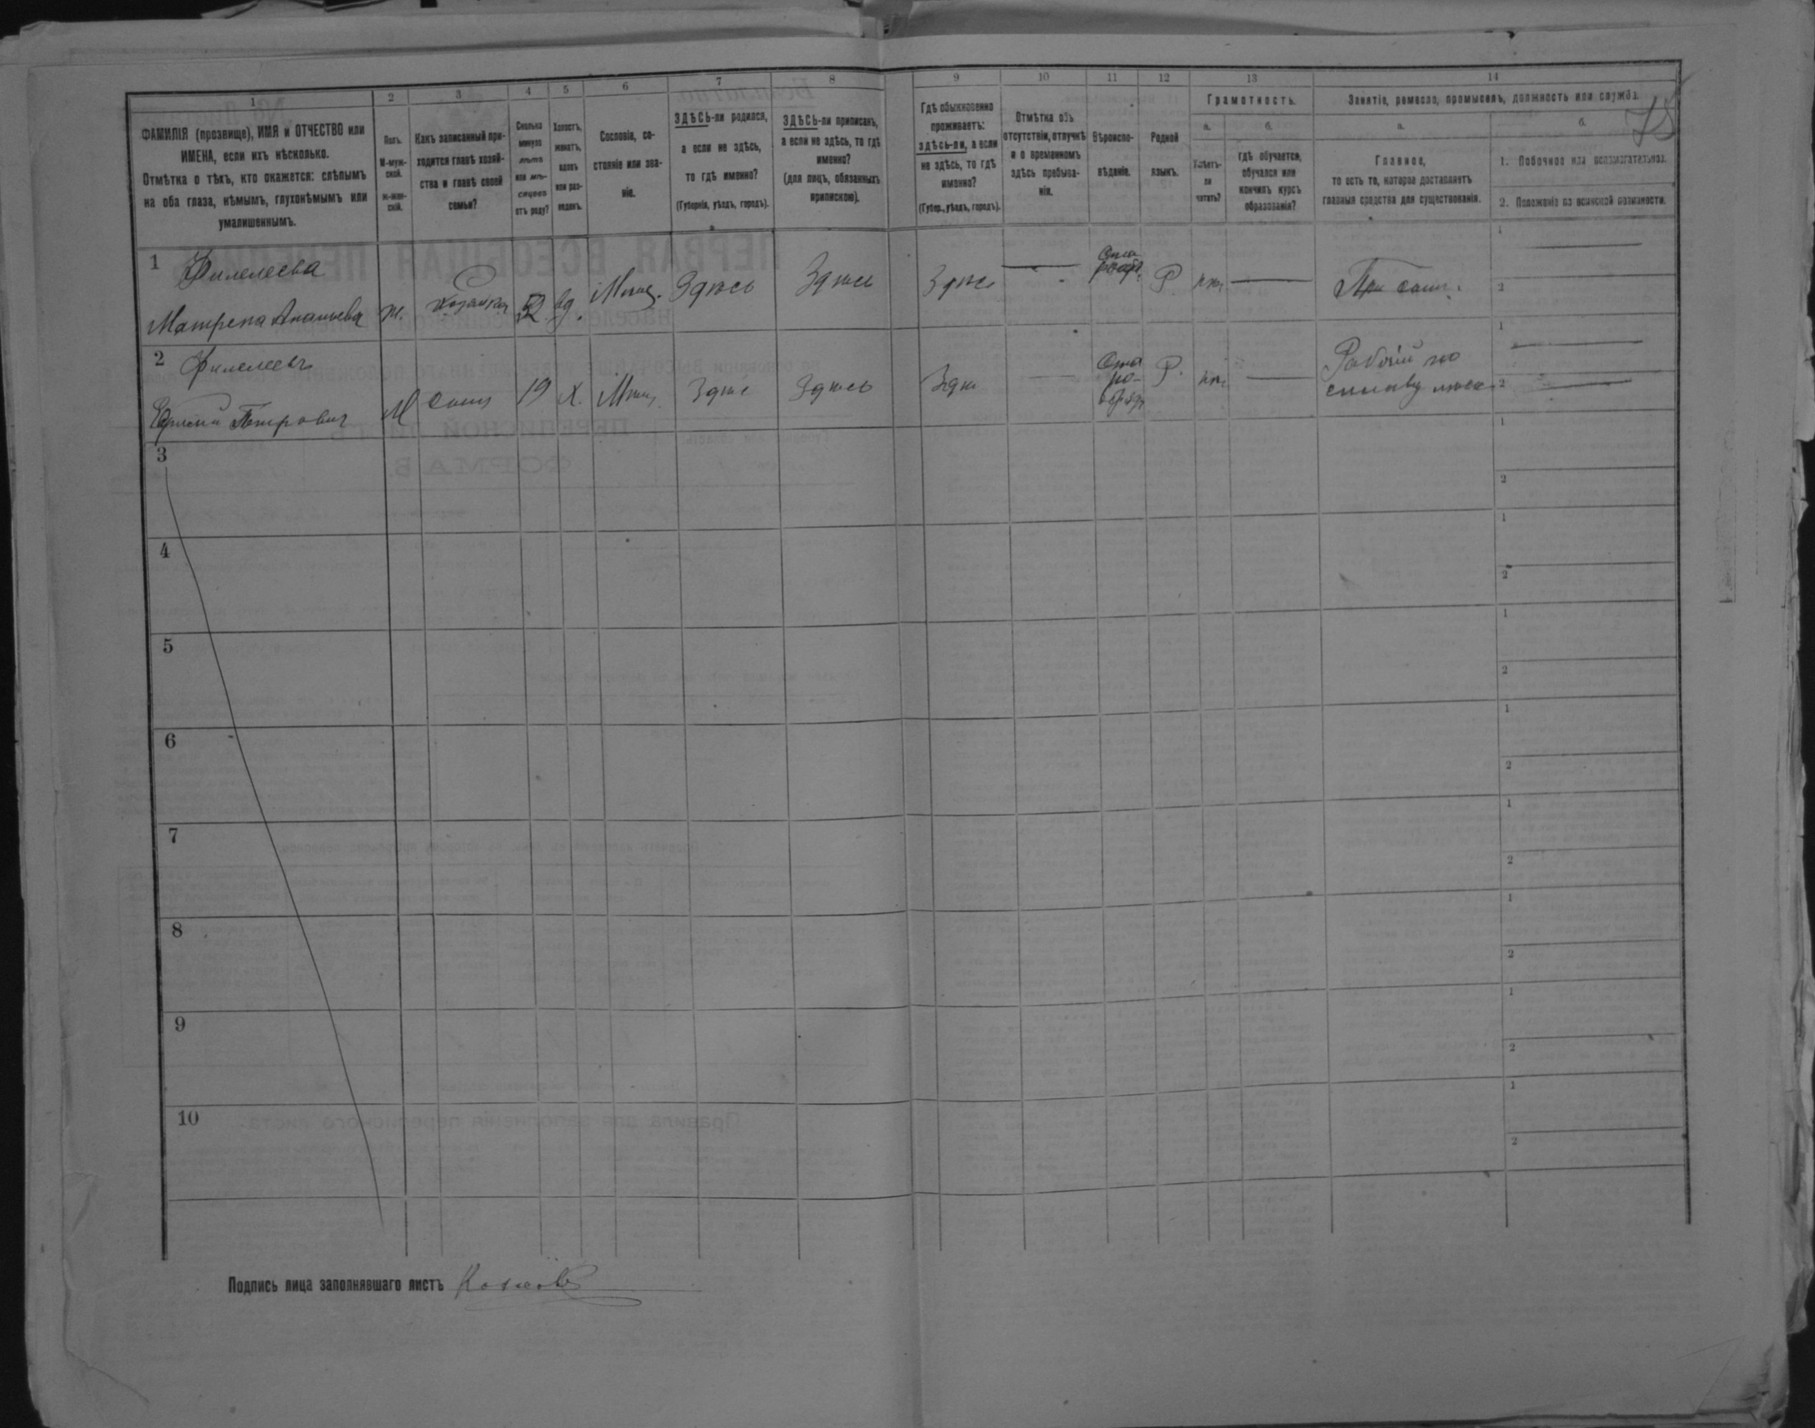 1 2 3 4 5 6 7 8 9 10 11 12 13 14
75
ФАМИЛІЯ (прозвище), ИМЯ и ОТЧЕСТВО или
ИМЕНА, если ихъ нѣсколько.
Отмѣтка о тѣхъ, кто окажется: слѣпымъ
на оба глаза, нѣмымъ, глухонѣмымъ или
умалишеннымъ.
Полъ.
М-муж-
ской.
Ж-жен-
скій.
Какъ записанный при-
ходится главѣ хозяй-
ства и главѣ своей
семьи?
Сколько
минуло
лѣтъ
или мѣ-
сяцевъ
отъ роду?
Холостъ,
женатъ,
вдовъ
или раз-
веденъ.
Сословіе, со-
стояніе или зва-
ніе.
ЗДѢСЬ-ли родился,
а если не здѣсь,
то гдѣ именно?
(Губернія, уѣздъ, городъ).
ЗДѢСЬ-ли приписанъ,
а если не здѣсь, то гдѣ
именно?
(для лицъ, обязанныхъ
припискою).
Гдѣ обыкновенно
проживаетъ:
здѣсь-ли, а если
не здѣсь, то гдѣ
именно?
(Губер., уѣздъ, городъ).
Отмѣтка объ
отсутствіи, отлучкѣ
и о временномъ
здѣсь пребыва-
ніи.
Вѣроиспо-
вѣданіе.
Родной
языкъ.
Грамотность.
а.
Умѣетъ-
ли
читать?
б.
гдѣ обучается,
обучался или
кончилъ курсъ
образованія?
Занятіе, ремесло, промыселъ, должность или служба.
а.
Главное,
то есть то, которое доставляетъ
главныя средства для существованія.
б.
1. Побочное или вспомогательное.
2. Положеніе по воинской повинности.
1 Филелеева
Матрена Ананьева ж. хозяйка вд. Мѣщ. Здѣсь Здѣсь Здѣсь — Р нѣт — При сын.
2 Филелеевъ
Петрович М сынъ 19 х. Мѣщ. Здѣс Здѣсь Здѣс — Ста
ро-
обряд Р. нѣт — Рабочій по
сплаву лѣса
3
4
5
6
7
8
9
10
Подпись лица заполнявшаго листъ